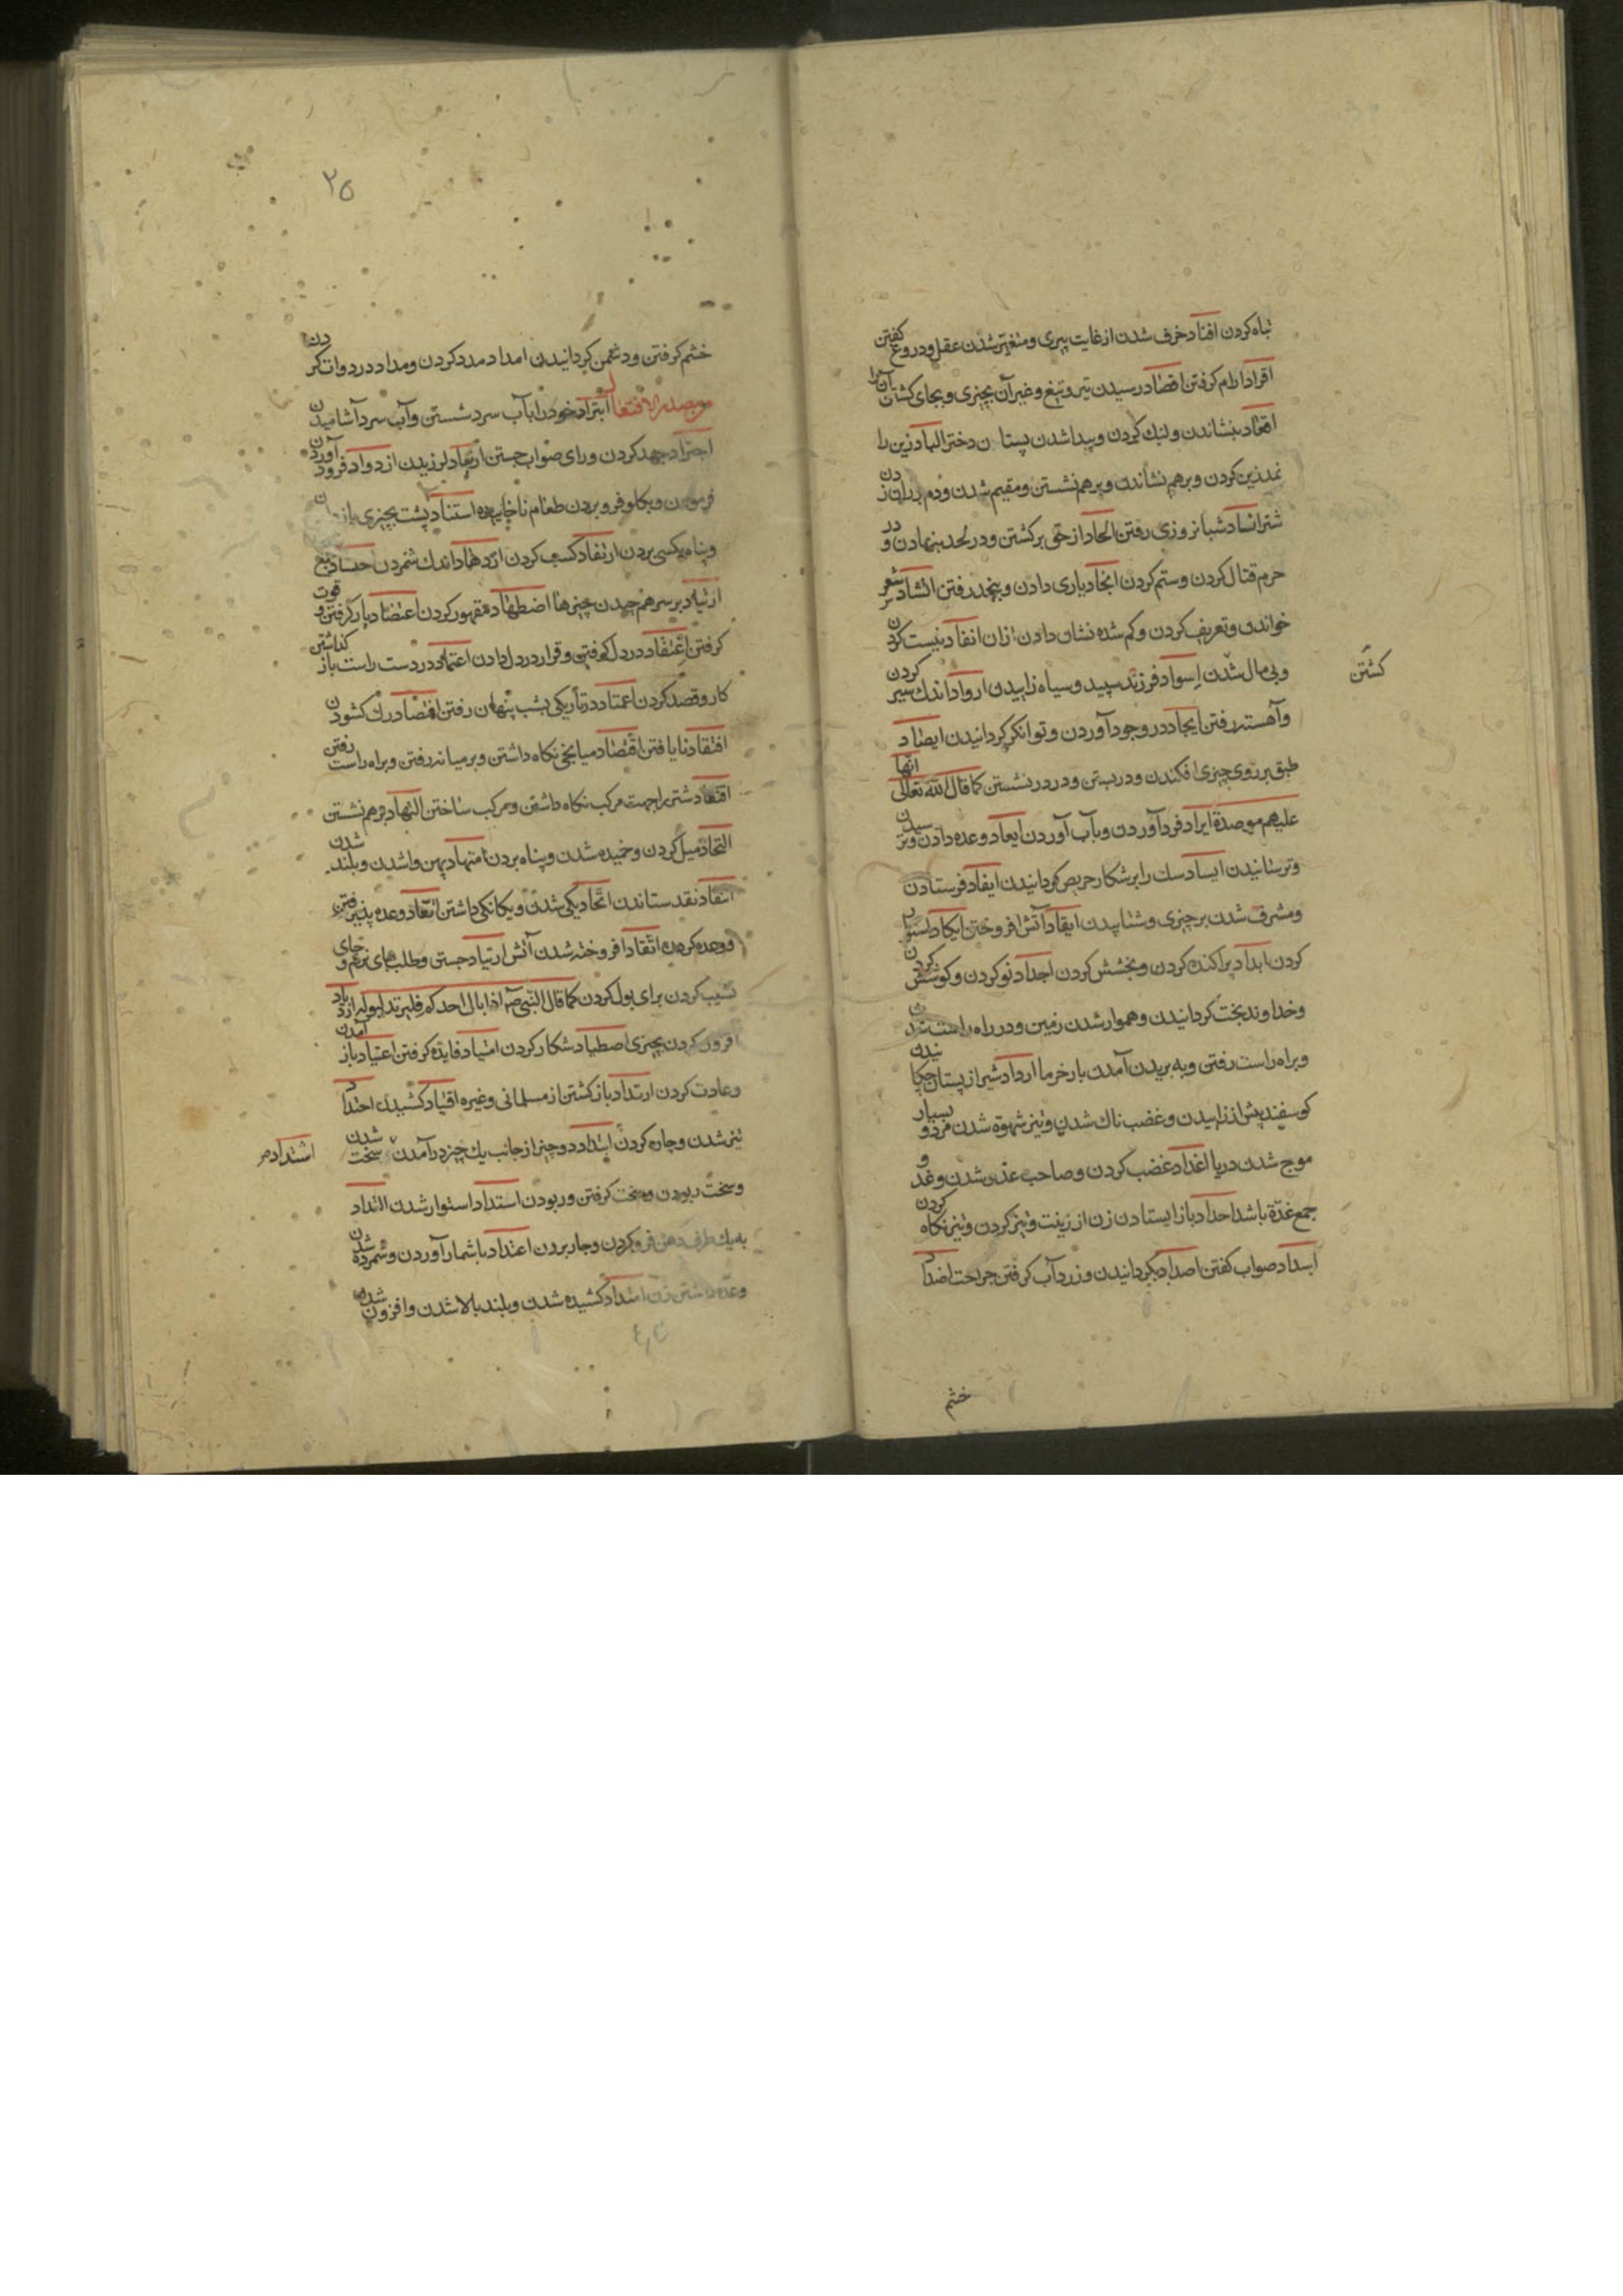 تباه کردن افناد خرف شدن از غایت پیری و متغیر شدن عقل و دروغ کفتن
اقراد ارام کرفتن اقصاد رسیدن تیر و تیغ و غیر آن بچیزی و بجای کشتن آنرا
اقعاد بنشاندن ولنك کردن و پیدا شدن پستان دختر الباد زین را
نمدزین کردن و برهم نشاندن و برهم نشستن و مقیم شدن و دم بر ران زدن
شتر اسآد شبانروزی رفتن الحاد از حق برکشتن و در لحد بنهادن و در
حرم قتال کردن و ستم کردن انجاد یاری دادن و بنجد رفتن انشاد شعر
خواندن و تعریف کردن و کم شده نشان دادن ازان انفاد نیست کردن
و بی مال شدن اسواد فرزند سپید و سیاه زاییدن ارواد اندك سیر کردن
کشتن
و آهسته رفتن ایجاد در وجود آوردن و توانکر کردانیدن ایصاد
طبق بر روی چیزی افکندن و در بستن و در در نشستن کما قال الله تعالی انها
علیهم موصدة ایراد فرد آوردن و بآب آوردن ایعاد وعده دادن و ترسیدن
و ترسانیدن ایساد سك را بر شکار حریص کردانیدن ایفاد فرستادن
و مشرف شدن بر چیزی و شتاپیدن ایقاد آتش افروختن ایکاد استوار
کردن ابداد پراکنده کردن و بخشش کردن اجداد نو کردن و کوشش کردن
و خداوند بخت کردانیدن و هموار شدن زمین و در راه راست شدن
و براه راست رفتن و به بریدن آمدن بار خرما ارداد شیر از پستان چکانیدن
کوسفند پیش از زاییدن و غضب ناك شدن و تیز شهوة شدن مرد و بسیار
موج شدن دریا اغداد غضب کردن و صاحب غده شدن و غدد و
جمع غدة باشد احداد باز ایستادن زن از زینت و تیز کردن و تیز نکاه کردن
اسداد صواب کفتن اصداد بکردانیدن و زرد آب کرفتن جراحت اضداد
خشم
۲۵
خشم کرفتن و دشمن کردانیدن امداد مدد کردن و مداد در دوات کردن
من مصدر الافتعال ابتراد خود را بآب سرد شستن و آب سرد آشامیدن
اجتهاد جهد کردن و رای صواب جستن ارتعاد لرزیدن ازدراد فرود آوردن
و بکلو فرو بردن طعام ناخاییده استناد پشت بچیزی باز
و پناه بکسی بردن ارتفاد کسب کردن ازدهاد اندك شمردن احتساد جمع
ارتثاد بر سر هم چیدن چیزها اضطهاد مقهور کردن اعتضاد یار کرفتن و قوت
کرفتن اعتقاد در دل کرفتن و قرار در دل دادن اعتماد در دست راست باز کذاشتن
کار و قصد کردن اغتماد در تاریکی بشب پنهان رفتن افتصاد رك کشودن
افتقاد نایافتن اقتصاد میانجی نکاه داشتن و بر میانه رفتن و براه راست رفتن
اقتعاد شتر را جهت مرکب نکاه داشتن و مرکب ساختن التباد برهم نشستن
التحاد میل کردن و خمیده شدن و پناه بردن امتهاد پهن واشدن و بلند شدن
انتقاد نقد ستاندن اتحاد یکی شدن و یکانکی داشتن اتعاد وعده پذیرفتن
و وعده کردن اتقاد افروخته شدن آتش ارتیاد جستن و طلب جای نرم و جای
نشیب کردن برای بول کردن کما قال النبی ص اذا بال احدکم فلیرتد لبوله ازدیاد
افزون کردن بچیزی اصطیاد شکار کردن امتیاد فایده کرفتن اعتیاد باز آمدن
و عادت کردن ارتداد باز کشتن از مسلمانی و غیره اقتیاد کشیدن احتداد
تیز شدن و چاره کردن ابتداد دو چیز از جانب یك چیز در آمدن سخت شدن
اشتداد
و سخت دویدن و سخت کرفتن و ربودن استداد استوار شدن التداد
به یك طرف دهن فرو کردن و جار بردن اعتداد باشمار آوردن و شمرده شدن
و عده داشتن زن امتداد کشیده شدن و بلند بالا شدن و افزون شدن